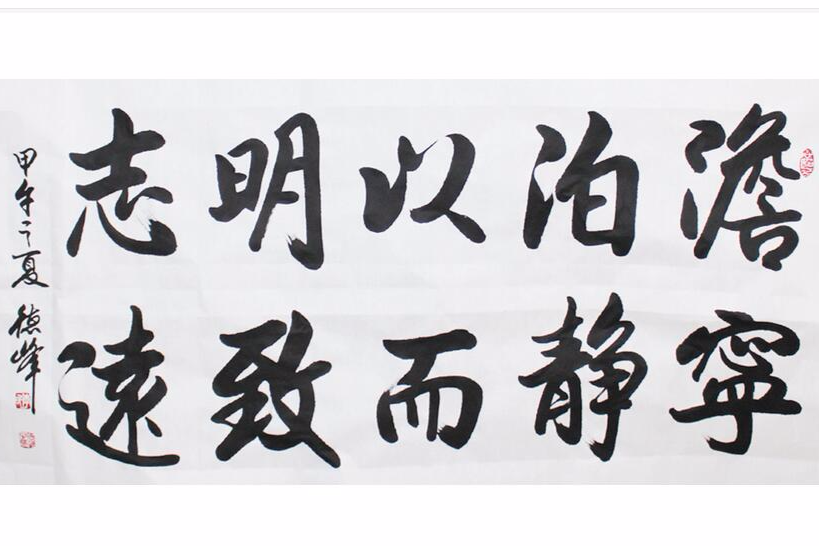 澹泊以明志
寧静而致遠
甲午之夏 德峰